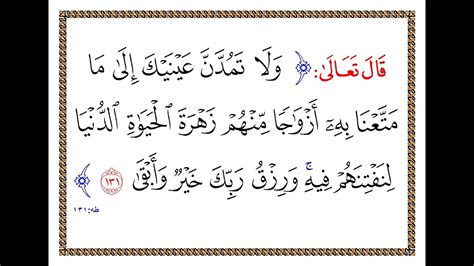 قَالَ تَعَالَىٰ: ﴿ وَلَا تَمُدَّنَّ عَيْنَيْكَ إِلَىٰ مَا
مَتَّعْنَا بِهِۦٓ أَزْوَٰجًا مِّنْهُمْ زَهْرَةَ ٱلْحَيَوٰةِ ٱلدُّنْيَا
لِنَفْتِنَهُمْ فِيهِ ۚ وَرِزْقُ رَبِّكَ خَيْرٌ وَأَبْقَىٰ ١٣١ ﴾
طه: ١٣١